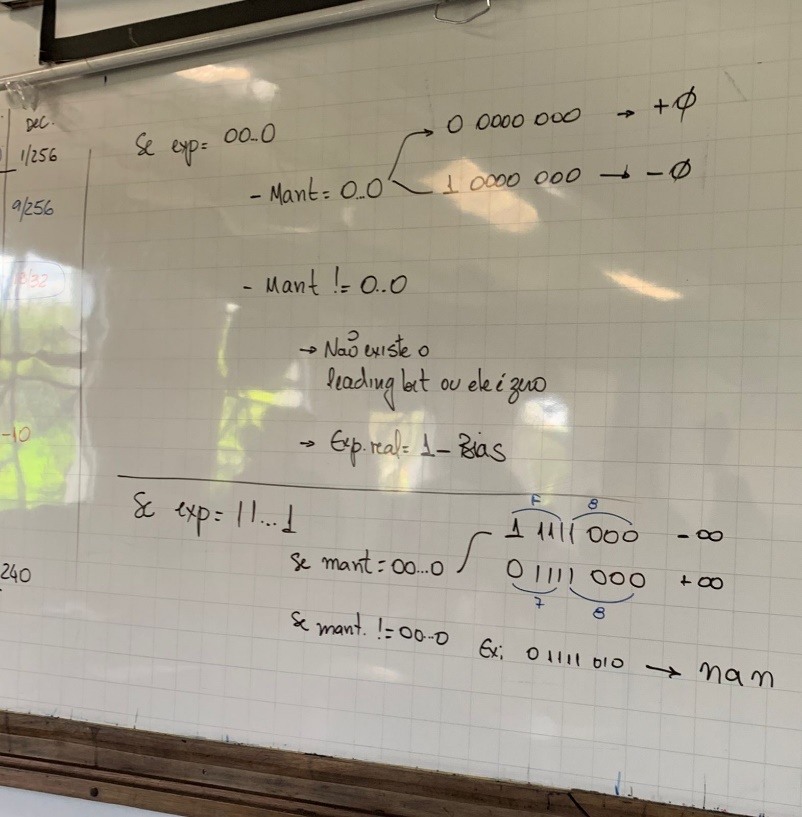 Dec.
1/256
9/256
-10
240
Se exp= 00..0
- Mant= 0..0
0 0000 000 → +∅
1 0000 000 → -∅
- Mant != 0..0
→ Não existe o
leading bit ou ele é zero
→ Exp. real= 1 - Bias
Se exp= 11...1
F 8
1 1111 000 - ∞
Se mant = 00...0
0 1111 000 + ∞
7 8
Se mant. != 00..0 Ex: 0 1111 010 → nan